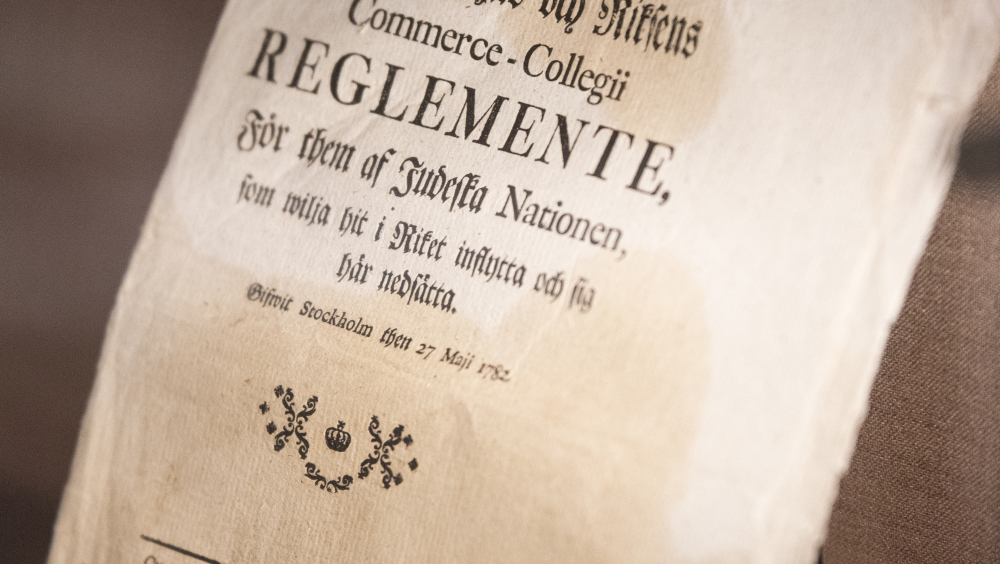 och Riksens
Commerce-Collegii
REGLEMENTE,
För them af Judeska Nationen,
som wilja hit i Riket inflytta och sig
här nedsätta.
Gifwit Stockholm then 27 Maji 1782.